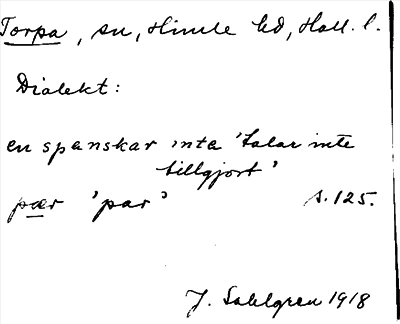 Torpa, sn, Himle hd, Hall. l.
Dialekt:
en spanskar inta 'talar inte
tillgjort'
pær 'par' s. 125.
J. Sahlgren 1918